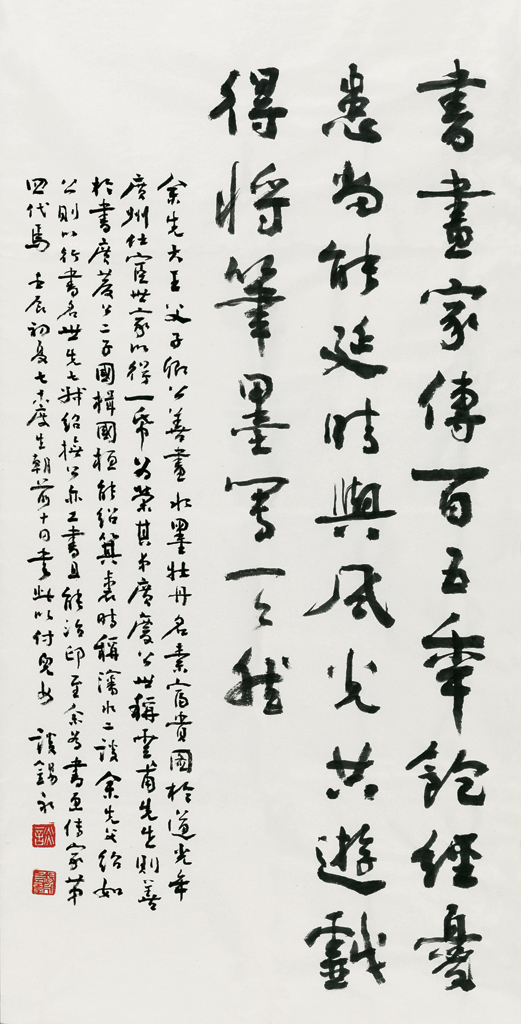 書畫家傳百五年飽經憂
患尚能延時與風光共遊戲
得將筆墨寫一天然
余先大王父子卿公善畫水墨牡丹名素富貴圖於道光年
廣州仕宦世家以得一幀為榮其弟廣慶公世稱雲甫先生則善
於書廣慶公二子國楫國桓能紹箕裘時稱瀋水二談余先父紹如
公則以行書名世先七叔紹撫公亦工書且能治印至余為書畫傳家第
四代焉 壬辰初夏七十度生朝前十日書此以付兒女 談錫永